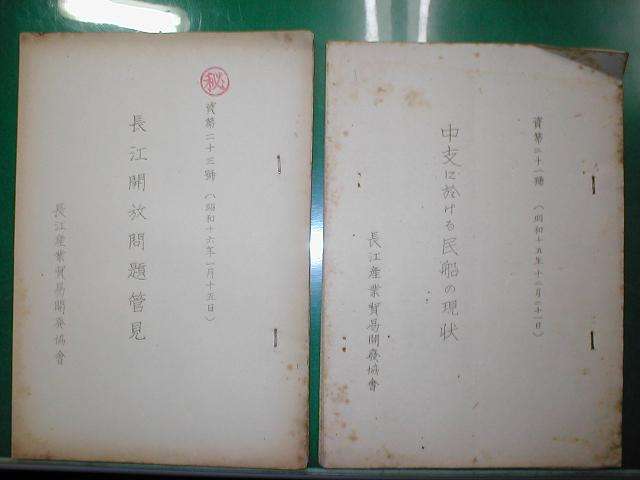 資第二十一號 (昭和十五年十二月二十一日)
中支に於ける民船の現状
長江産業貿易開發協會
秘
資第二十三號 (昭和十六年一月十五日)
長江開放問題管見
長江産業貿易開發協會